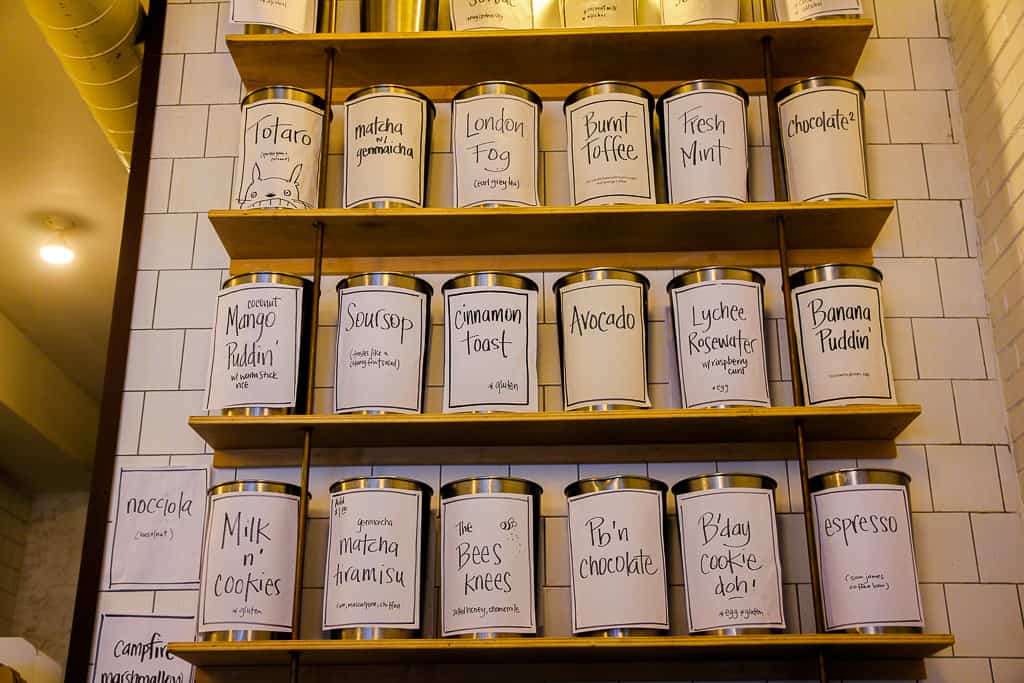 Totaro
matcha
w/
genmaicha
London
Fog
(earl grey tea)
Burnt
Toffee
Fresh
Mint
chocolate²
coconut
Mango
Puddin'
w/ warm stick
rice
Soursop
(tastes like a
cinnamon
toast
*gluten
Avocado
Lychee
Rosewater
w/ raspberry
curd
*egg
Banana
Puddin'
nocciola
(hazelnut)
Milk
n'
cookies
*gluten
Add
genmaicha
matcha
tiramisu
rum, mascarpone, chiffon
The
Bees
Knees
salted honey, chamomile
Pb'n
chocolate
B'day
cook'e
doh!
*egg *gluten
espresso
(sam james
coffee bar)
campfire
marshmallow